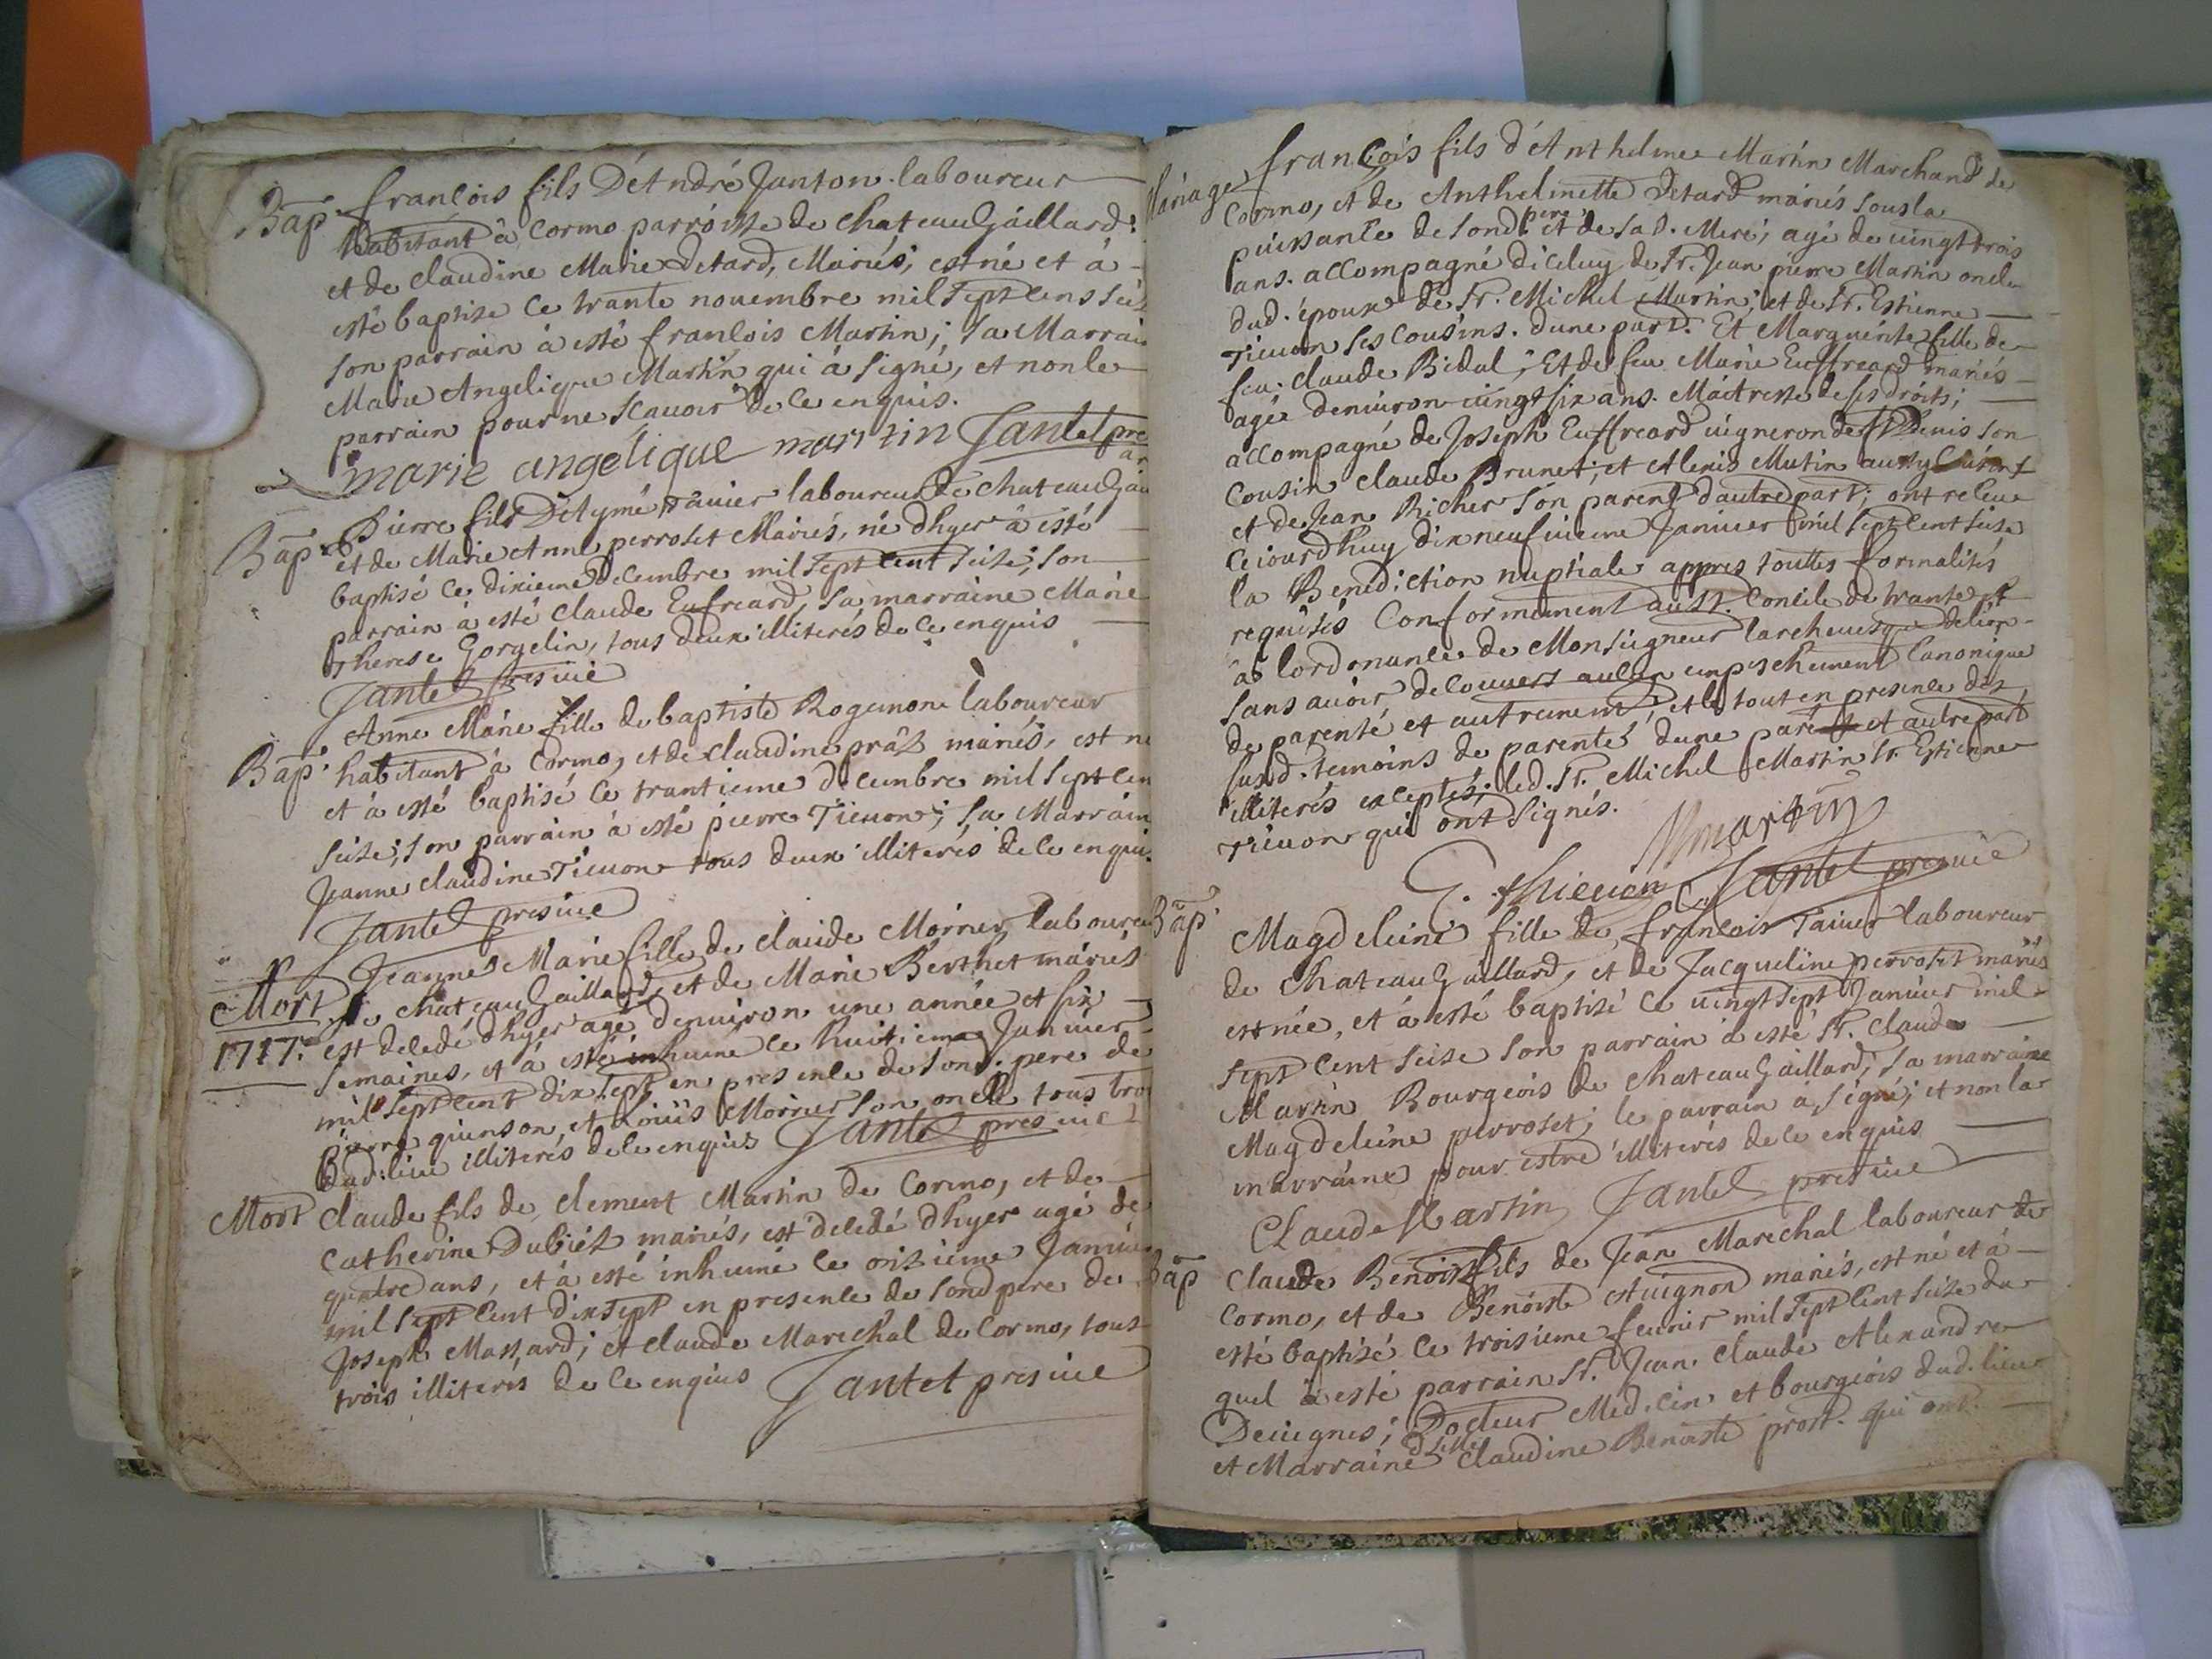 Bap. françois fils D'André Janton laboureur
habitant à Cormo parroisse de chateauGaillard;
et de claudine Marie Detard, Mariés, est né et à
esté baptise ce trante nouembre mil sept cens seis
son parrain à esté françois Martin; sa Marrain
Marie Angelique Martin qui à signé, et non le
parrain pour ne scauoir de ce enquis.
marie angelique martin Jantet pre
Bap. Pierre fils D'Aymé tauier laboureur de chateauGai
et de Marie Anne perroset Mariés, né d'hyer à esté
baptisé ce dixieme decembre mil sept cent seise; son
parrain à esté claude Eufreard, sa marraine Marie
therese Gorgelin, tous deux illiterés de ce enquis
Jantet presuié
Anne Marie fille de baptiste Rogemon laboureur
Bap. habitant à Cormo, et de claudine prâs mariés, est né
et à esté baptisé ce trantieme decembre mil sept cen
seise; son parrain à esté pierre Tieuon; sa Marrain
Jeanne claudine Tieuon tous deux illiterés de ce enquis
Jantet presuié
Jeanne Marie fille de claude Morner, laboureu
Mort de chateauGaillard, et de Marie Berthet mariés
1717. est decedé d'hyer agé denuiron une année et six
semaines, et à esté inhumé ce huitieme Januier
mil sept cent dix sept en presence de sond. pere de
pierre guinson, et Loüis Morner son oncle tous troi
dud. lieu illiterés de ce enquis Jantet presuié
Mort claude fils de clement Martin de Cormo, et de
Catherine Dubiet mariés, est decedé d'hyer agé de
quatre ans, et à esté inhumé ce onzieme Januie
mil sept cent dix sept en presence de sond pere de
Joseph Massard; et claude Marechal de Cormo, tous
trois illiterés de ce enquis Jantet presuié
Mariage françois fils d'Anthelme Martin Marchand de
Cormo, et de Anthelmette Detard mariés sous la
puissance de sond. pere et de sa d. Mere; agé de uingt trois
ans. accompagné d'iceluy de Sr. Jean pierre Martin oncle
dud. époux de Sr. Michel Martin; et de Sr. Estienne
Tieuon ses cousins. d'une part. Et Marguerite fille de
feu claude Bidal; Et de feu Marie Euffreard mariés
agée denuiron uingt six ans. Maitresse de ses droits;
accompagné de Joseph Euffreard uigneron de St Denis son
Cousin claude Brunet; et Alexis Mutin aussy
et de Jean Richer son parent d'autre part; ont receue
ce iourdhuy dix neufuieme Januier mil sept cent seise
la Benediction nuptiale appres touttes formalités
requises Conformement au St. Concile de trante et
à lordonance de Monseigneur larcheuesque de lion
sans auoir decouuert aulcun empeschement Canonique
de parenté et autrement; et le tout en presence des
susd. temoins de parentés d'une part et autre part
illiterés exceptés led. Sr. Michel Martin Sr. Estienne
Tieuon qui ont signés.
Mmartin
Thieuon Jantet presuié
Bap. Magdeleine fille de françois Tauier laboureur
de chateauGaillard, et de Jacqueline perroset mariés
est née, et à esté baptisé ce uingt sept Januier mil
sept cent seise son parrain à esté Sr. claude
Martin Bourgeois de chateauGaillard; sa marraine
Magdeleine perroset; le parrain à signé; et non la
marraine pour estre illiterés de ce enquis
Claude Martin Jantet presuié
Bap Claude Benoist fils de Jean Marechal laboureur de
Cormo, et de Benoiste Auignon mariés, est né et à
esté baptisé ce troisieme feurier mil sept cent seise du
quel à esté parrain Sr. Jean claude Alexandre
Deuignes; Docteur Medecin et bourgeois dud. lieu
et Marraine dlle claudine Benoiste prost. qui ont